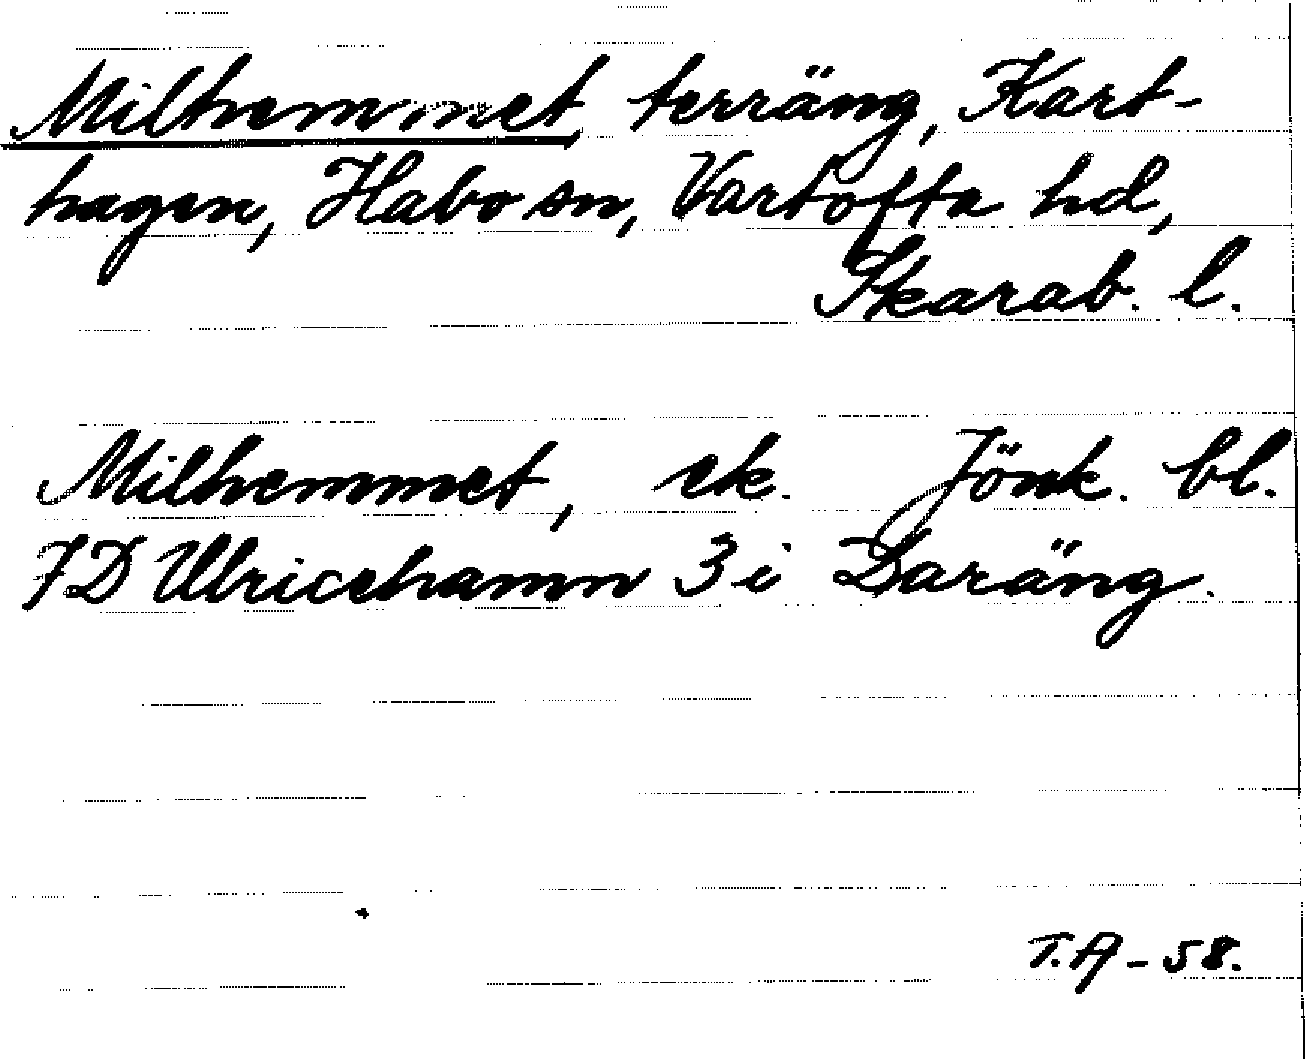 Milhemmet terräng, Kart-
hagen, Habo sn, Vartofta hd,
Skarab. l.
Milhemmet, ek. Jönk. bl.
7D Ulricehamn 3 i Daräng.
T.A - 58.